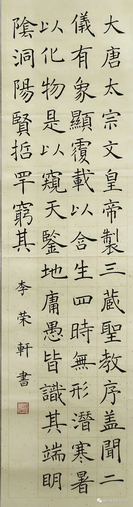 大唐太宗文皇帝製三藏聖教序盖聞二
儀有象顯覆載以含生四時無形潜寒暑
以化物是以窺天鑒地庸愚皆識其端明
陰洞陽賢哲罕窮其
李荣軒書